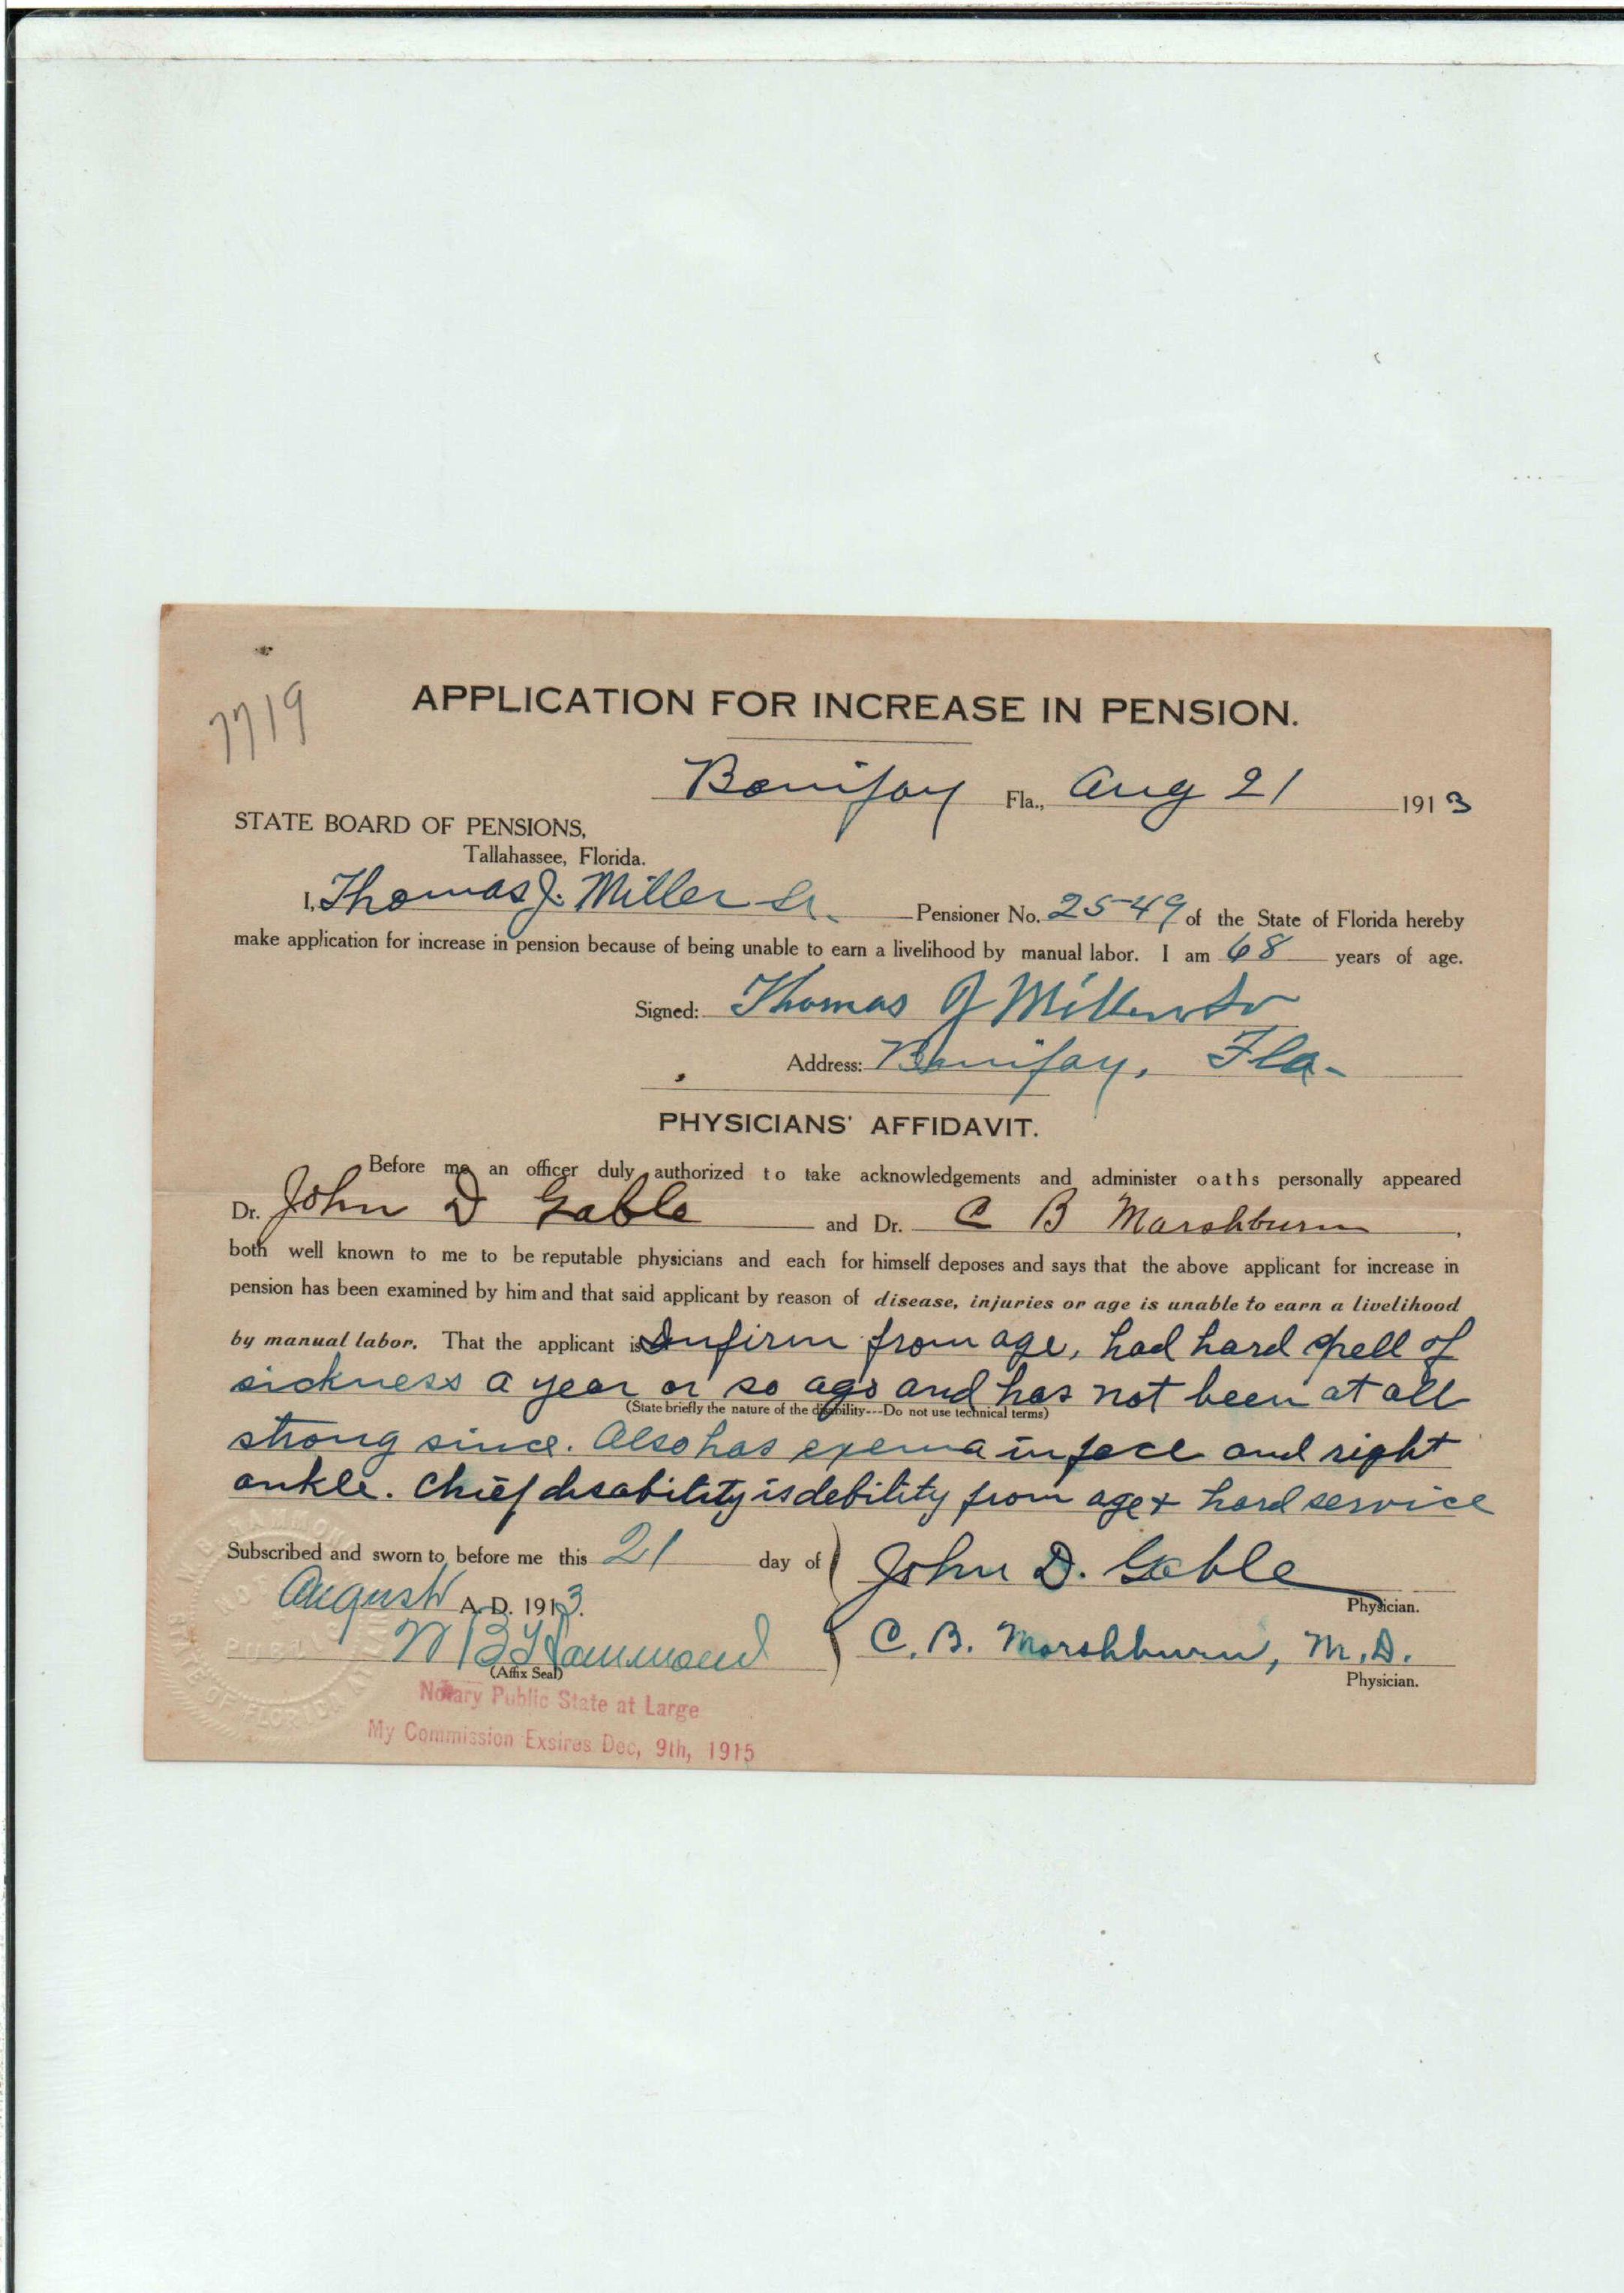 7719
APPLICATION FOR INCREASE IN PENSION.
Bonifay Fla., Aug 21 1913
STATE BOARD OF PENSIONS,
Tallahassee, Florida.
I, Thomas J. Miller Sr. Pensioner No. 2549 of the State of Florida hereby
make application for increase in pension because of being unable to earn a livelihood by manual labor. I am 68 years of age.
Signed: Thomas J Miller Sr
Address: Bonifay, Fla.
PHYSICIANS' AFFIDAVIT.
Before me an officer duly authorized to take acknowledgements and administer oaths personally appeared
Dr. John D Gable and Dr. C B Marshburn,
both well known to me to be reputable physicians and each for himself deposes and says that the above applicant for increase in
pension has been examined by him and that said applicant by reason of disease, injuries or age is unable to earn a livelihood
by manual labor. That the applicant is Infirm from age, had hard spell of
sickness a year or so ago and has not been at all
(State briefly the nature of the disability---Do not use technical terms)
strong since. Also has exema in face and right
ankle. Chief disability is debility from age & hard service
Subscribed and sworn to before me this 21 day of
August A. D. 1913.
John D. Gable
Physician.
W B Hammond
(Affix Seal)
C. B. Marshburn, M.D.
Physician.
Notary Public State at Large
My Commission Exsires Dec, 9th, 1915